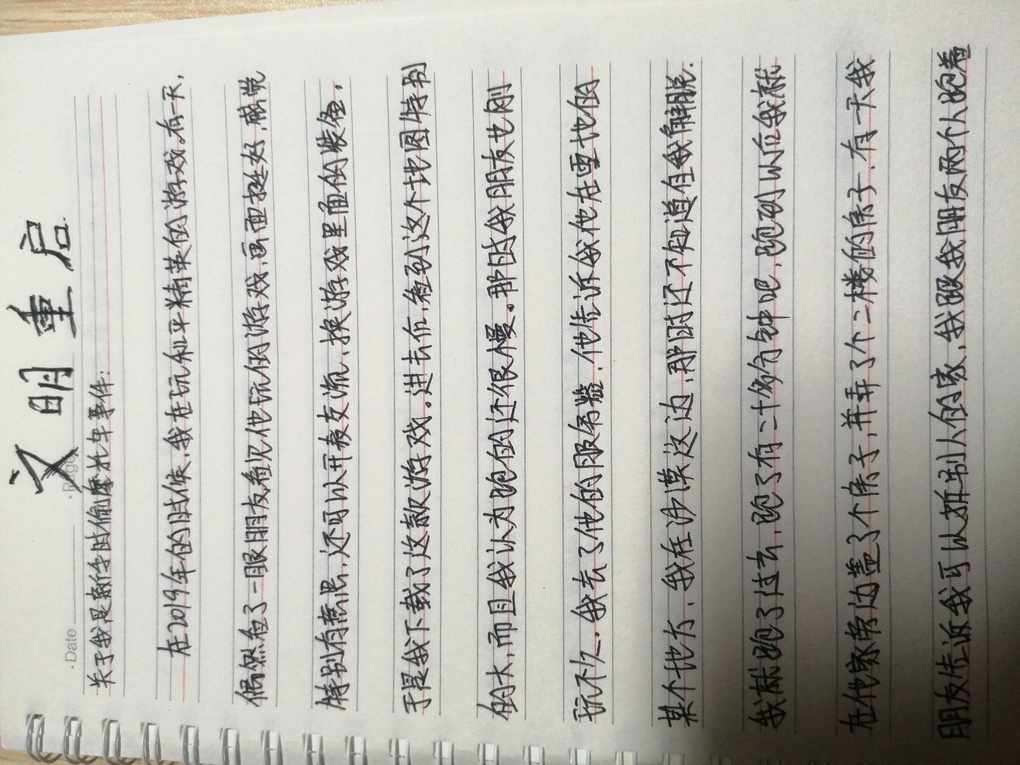 文明重启
Date
Page
关于我是新手时偷摩托车事件：
在2019年的时候，我在玩和平精英的游戏。有一天，
偶然看了一眼朋友看见他玩的游戏，画面挺好，感觉
特别有意思，还可以开麦交流，换游戏里面的装备，
于是我下载了这款游戏。进去后，看到这个地图特别
的大，而且我认为跑的还很慢。那时我朋友也刚
玩不久。我去了他的服务器，他告诉我他在雪地的
某个地方，我在沙漠这边，那时还不知道自我解脱.
我就跑了过去，跑了有二十多分钟吧，跑到以后我就
在他家旁边盖了个房子，并弄了个二楼的房子，有一天我
朋友告诉我可以拆别人的家，我跟我朋友两个人跑着